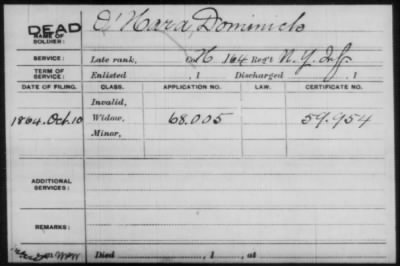 DEAD O'Hara, Dominick
NAME OF SOLDIER:
SERVICE: Late rank, Co H. 164 Reg't N.Y. Inf
TERM OF SERVICE: Enlisted , 1 Discharged , 1
DATE OF FILING. CLASS. APPLICATION NO. LAW. CERTIFICATE NO.
Invalid,
1864. Oct. 10 Widow, 68.005 59.954
Minor,
ADDITIONAL SERVICES:
REMARKS:
Died , 1 , at